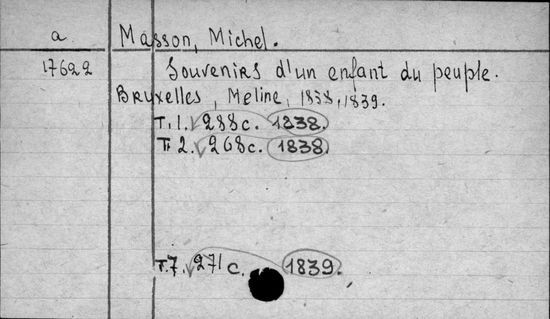 a
Masson, Michel.
17622
Souvenirs d'un enfant du peuple.
Bruxelles, Meline, 1838, 1839.
T. 1. 288 c. 1838.
T. 2. 268 c. 1838.
T. 7. 271 c. 1839.